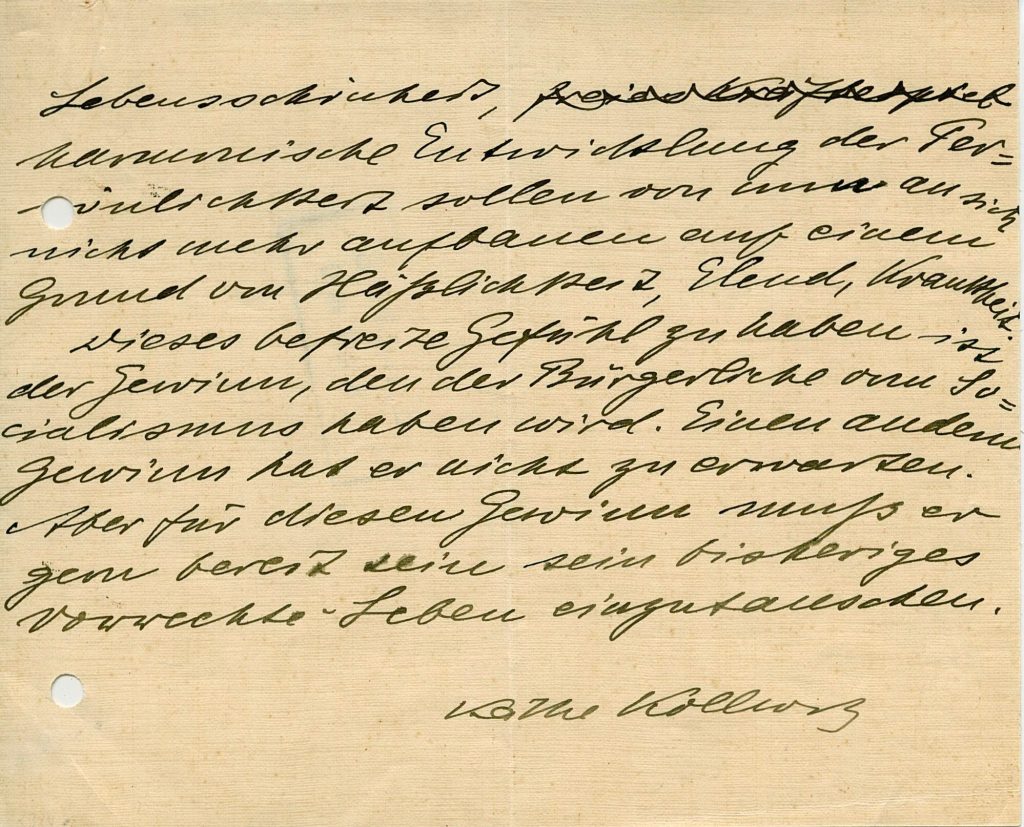 Lebensschönheit, freies Kräftespiel
harmonische Entwicklung der Per=
sönlichkeit sollen von nun an sich
nicht mehr aufbauen auf einem
Grund von Häßlichkeit, Elend, Krankheit.
Dieses befreite Gefühl zu haben ist
der Gewinn, den der Bürgerliche vom So=
cialismus haben wird. Einen andern
Gewinn hat er nicht zu erwarten.
Aber für diesen Gewinn muß er
gern bereit sein sein bisheriges
Vorrechte-Leben einzutauschen.
Käthe Kollwitz